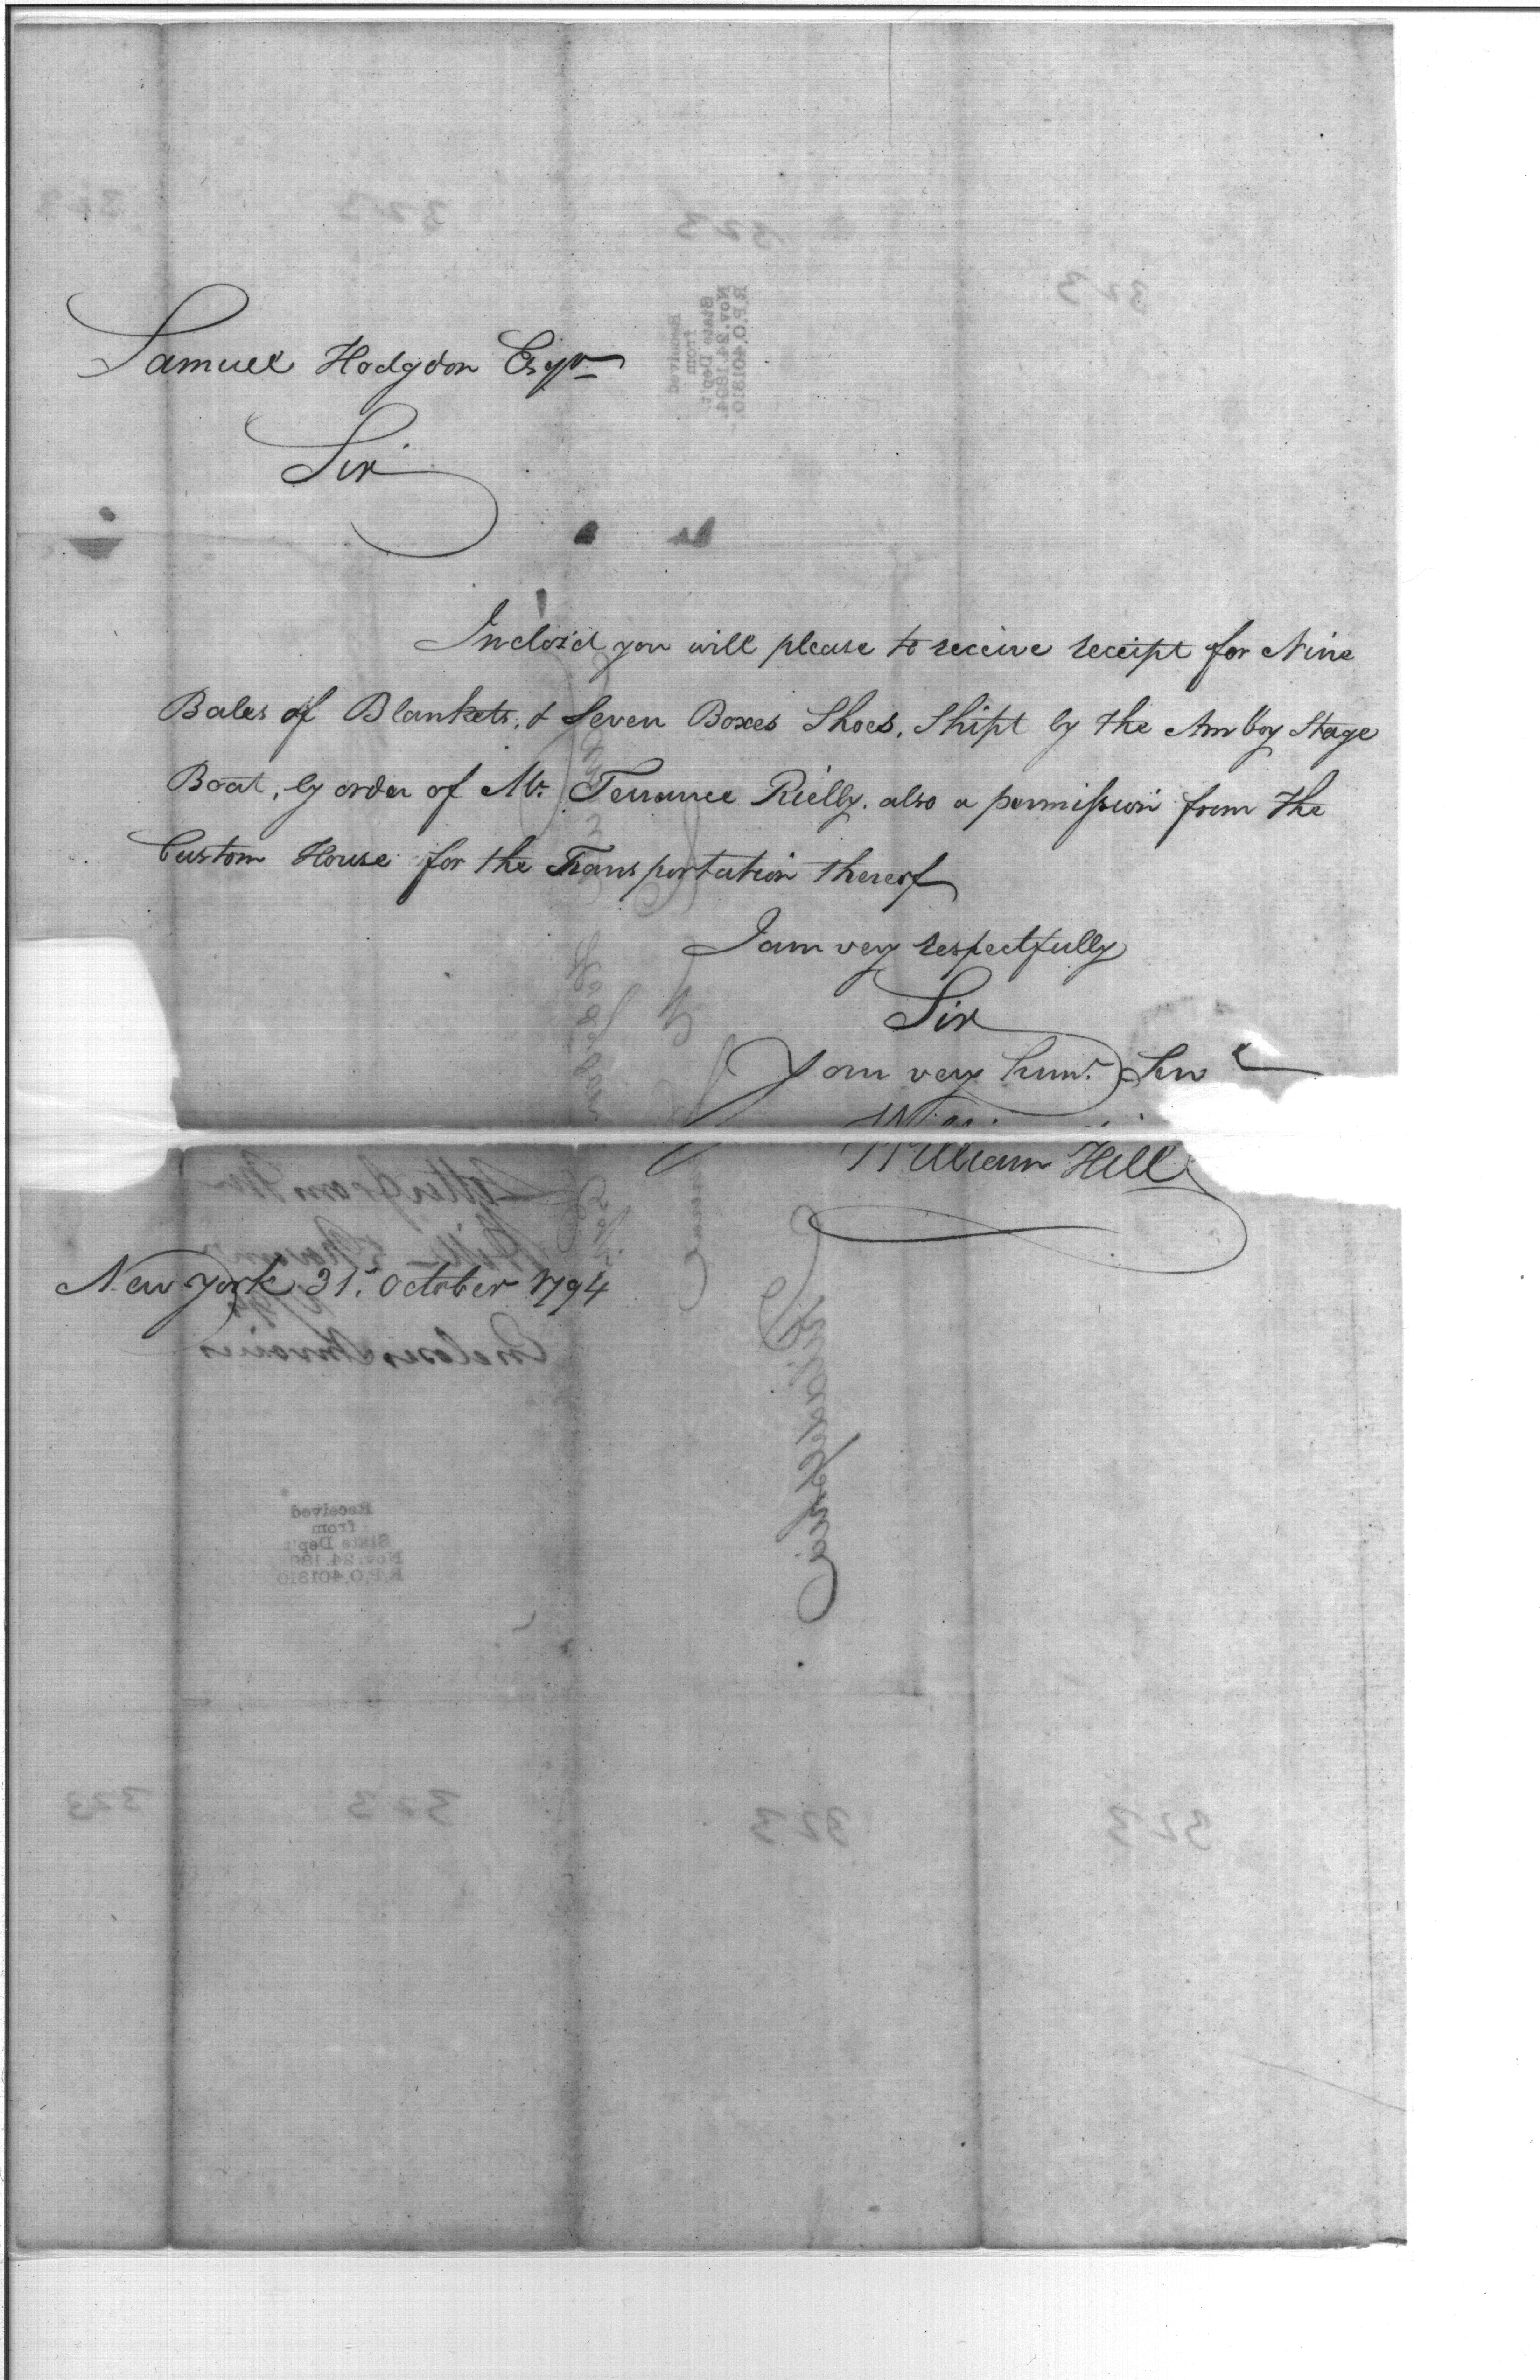 Samuel Hodgdon Esqr
Sir
Inclos'd you will please to receive receipt for Nine
Bales of Blankets, & Seven Boxes Shoes, Shipt by the Amboy Stage
Boat, by order of Mr. Terrance Rielly. also a permission from the
Custom House for the Transportation thereof
I am very respectfully
Sir
Your very humb. Serv
William Hill
New York 31st. October 1794
Encloses Invoices
Philadelphia
Received
from
State Dep't.
Nov. 24. 1894.
R.P.O. 401810.
Received
from
State Dep't.
Nov. 24. 189
R.P.O. 401810
323
323
323
323
323
323
323
323